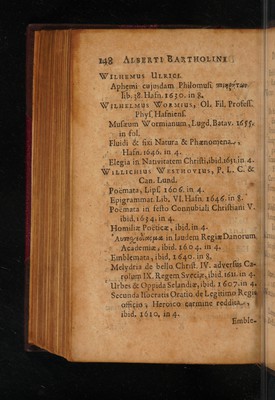 148 ALBERTI BARTHOLINI
WILHEMUS ULRICI.
Aphemi cujusdam Philomusi
lib. 38. Hafn. 1630. in 8.
WILHELMUS WORMIUS, Ol. Fil. Profess.
Phys. Hafniens.
Musæum Wormianum, Lugd. Batav. 1655.
in fol.
Fluidi & fixi Natura & Phænomena,
Hafn. in 4.
Elegia in Nativitatem Christi, ibid. in 4.
WILLICHIUS WESTHOVIUS, P. L. C. &
Can. Lund.
Poëmata, Lips. 1606. in 4.
Epigrammat. Lib. VI. Hafn. 1640. in 8.
Poëmata in festo Connubiali Christiani V.
ibid. 1634. in 4.
Homiliæ Poëticæ, ibid. in 4.
in laudem Regiæ Danorum
Academiæ, ibid. 1604. in 4.
Emblemata, ibid. 1640. in 8.
Melydria de bello Christ. IV. adversus Ca-
rolum IX. Regem Sveciæ, ibid. 1611. in 4.
Urbes & Oppida Selandiæ, ibid. 1607. in 4.
Secunda Isocratis Oratio de Legitimo Regis
officio, Heroico carmine reddita,
ibid. 1610. in 4.
Emble-